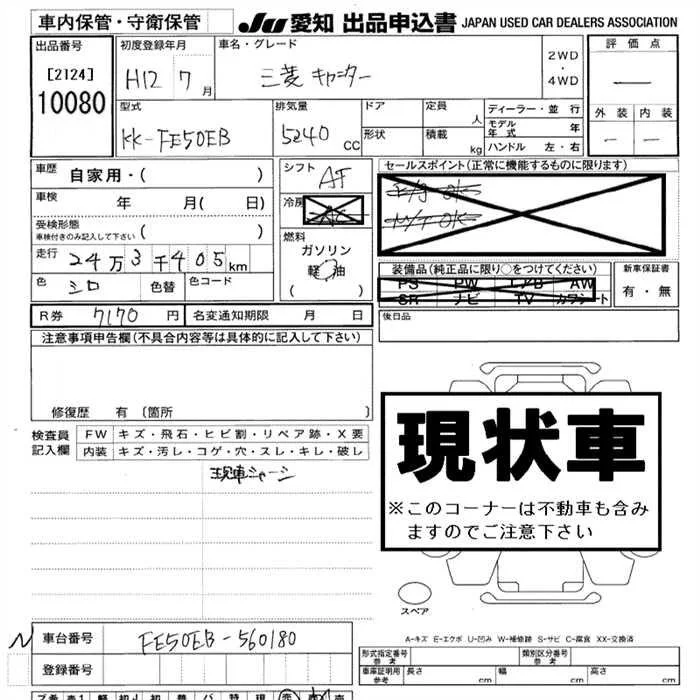 車内保管・守衛保管 JU 愛知 出品申込書 JAPAN USED CAR DEALERS ASSOCIATION
出品番号 初度登録年月 車名・グレード 2WD・4WD 評価点
[2124] H12 7月 三菱 キャンター —
10080
型式 排気量 ドア 定員 人 ディーラー・並行 外装 内装
KK-FE50EB 5240 CC 形状 積載 kg モデル年式 年 — —
ハンドル 左・右
車歴 自家用・( ) シフト AT セールスポイント(正常に機能するものに限ります)
車検 年 月( 日) 冷房 AC
M/T OK
受検形態 ( )
車検付きのみ記入して下さい
燃料
走行 24万3千405km ガソリン
軽油
( )
装備品(純正品に限り○をつけてください) 新車保証書
色 シロ 色替 色コード PS PW AW 有・無
SR ナビ TV カワシート
R券 7170円 名変通知期限 月 日 後日品
注意事項申告欄(不具合内容等は具体的に記入して下さい)
修復歴 有 〔箇所 〕
現状車
※このコーナーは不動車も含み
ますのでご注意下さい
検査員 FW キズ・飛石・ヒビ割・リペア跡・X要
記入欄 内装 キズ・汚レ・コゲ・穴・スレ・キレ・破レ
現車シャーシ
スペア
A-キズ E-エクボ U-凹み W-補修跡 S-サビ C-腐食 XX-交換済
車台番号 FE50EB-560180
登録番号
形式指定番号 参考 類別区分番号 参考
車庫証明用 参考 長さ cm 幅 cm 高さ cm